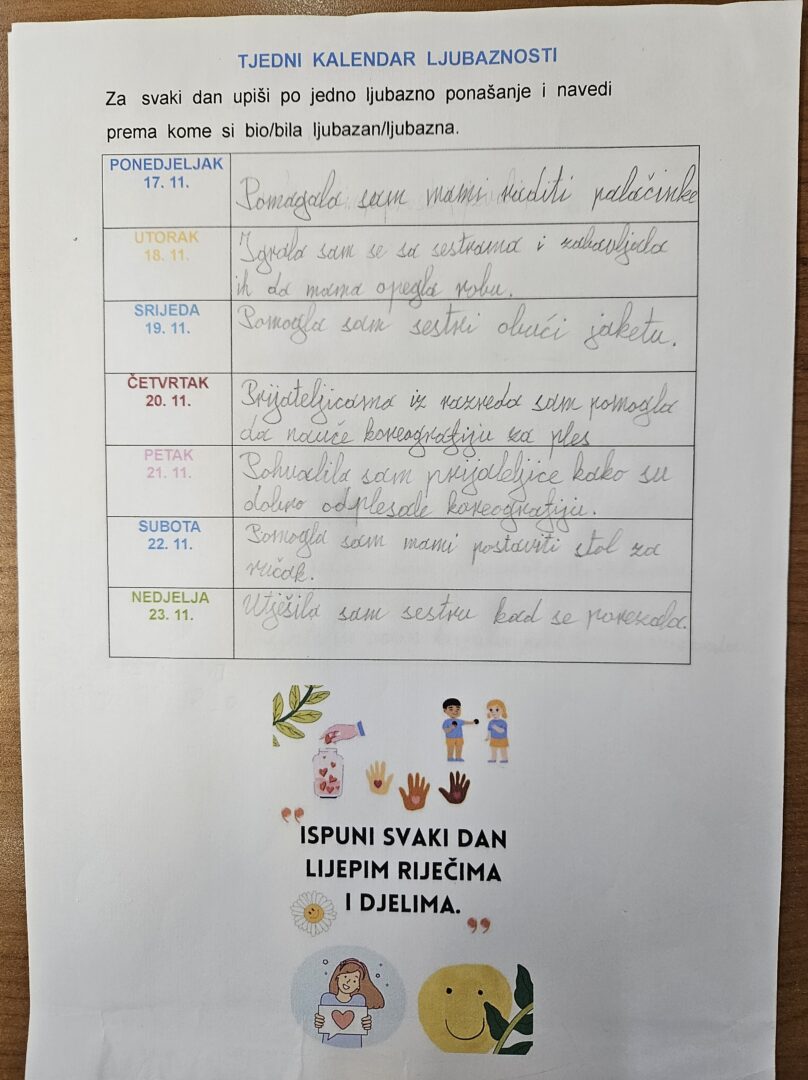 TJEDNI KALENDAR LJUBAZNOSTI
Za svaki dan upiši po jedno ljubazno ponašanje i navedi
prema kome si bio/bila ljubazan/ljubazna.
PONEDJELJAK
17. 11.
Pomagala sam mami raditi palačinke
UTORAK
18. 11.
Igrala sam se sa sestrama i zabavljala
ih da mama opegla robu.
SRIJEDA
19. 11.
Pomogla sam sestri obući jaketu.
ČETVRTAK
20. 11.
Prijateljicama iz razreda sam pomogla
da nauče koreografiju za ples
PETAK
21. 11.
Pohvalila sam prijateljice kako su
dobro odplesale koreografiju.
SUBOTA
22. 11.
Pomogla sam mami postaviti stol za
ručak.
NEDJELJA
23. 11.
Utješila sam sestru kad se porezala.
"ISPUNI SVAKI DAN
LIJEPIM RIJEČIMA
I DJELIMA."